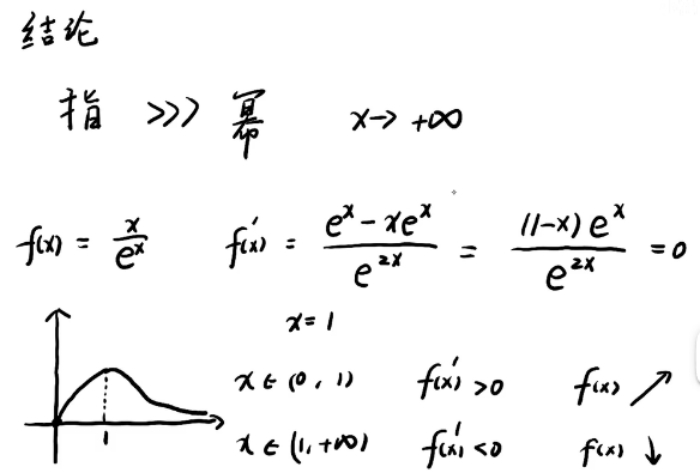 结论
指 >>> 幂 x→ +∞
f(x) = x/e^x f'(x) = (e^x - xe^x)/e^{2x} = ((1-x)e^x)/e^{2x} = 0
x = 1
x ∈ (0, 1) f'(x) > 0 f(x) ↗
x ∈ (1, +∞) f'(x) < 0 f(x) ↓
1